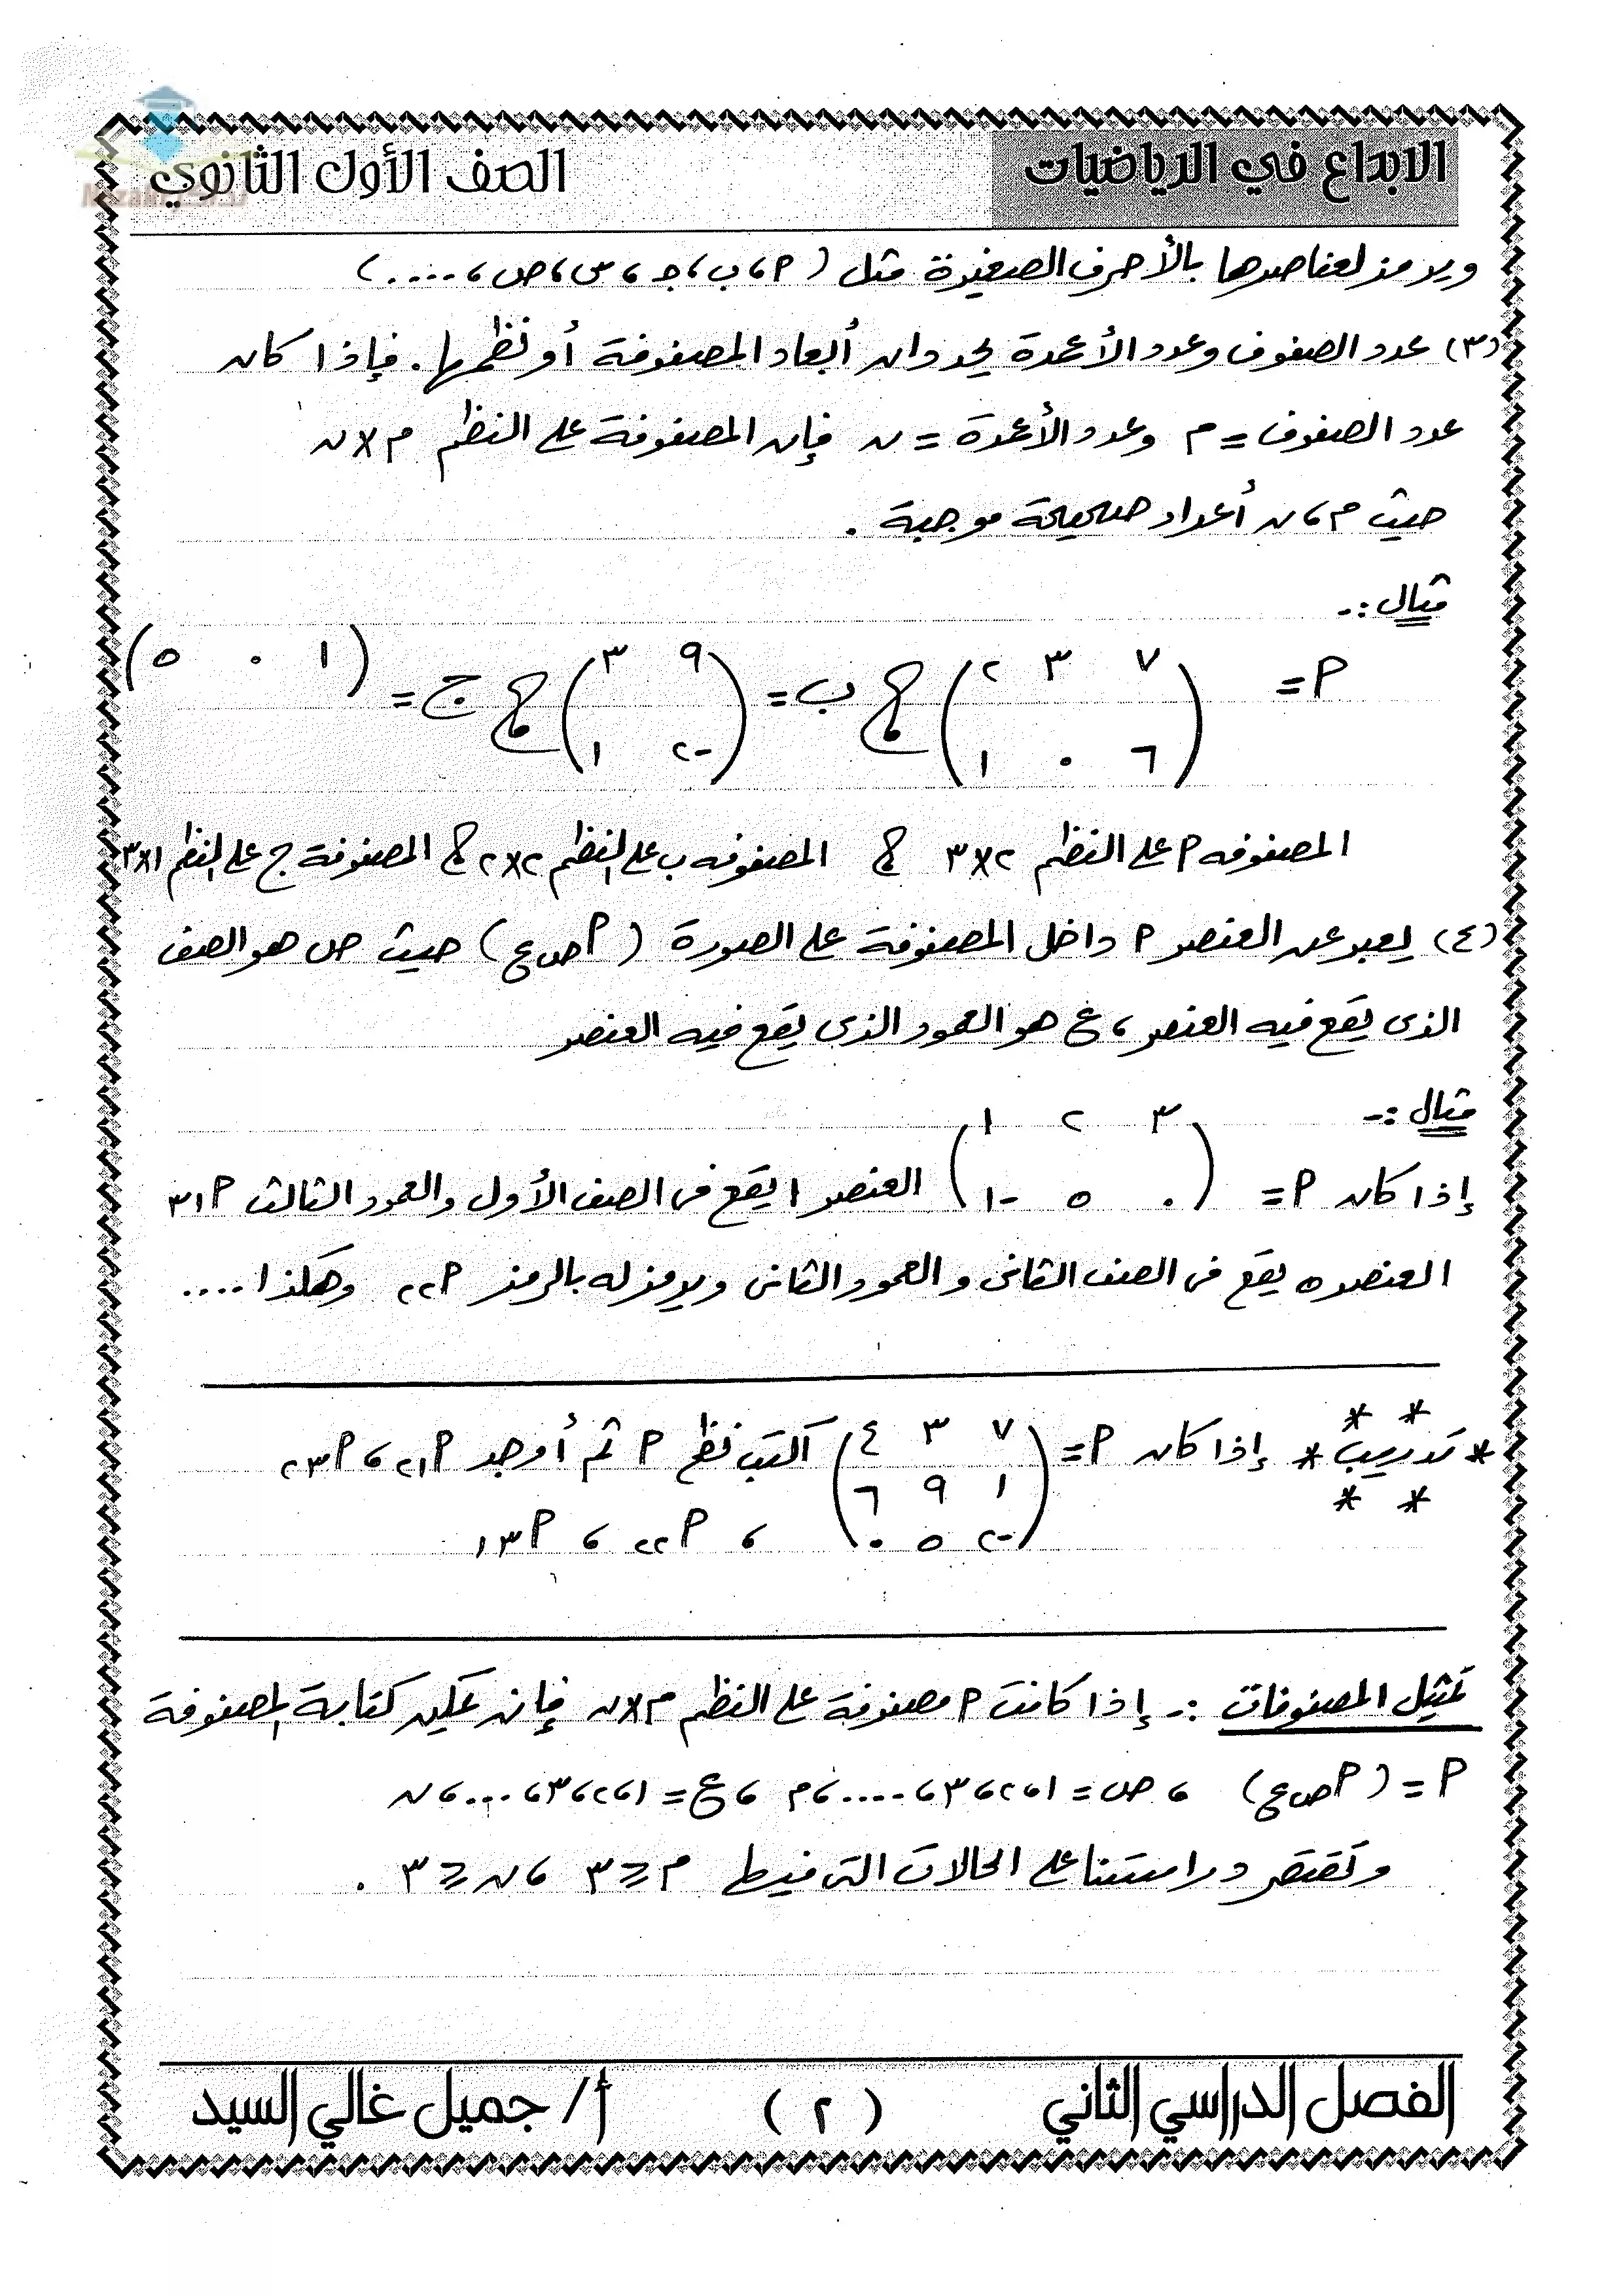 الابداع في الرياضيات
الصف الأول الثانوي
ويرمز لعناصرها بالأحرف الصغيرة مثل ( أ ، ب ، جـ ، س ، ص ، .... )
(٣) عدد الصفوف وعدد الأعمدة يحددان أبعاد المصفوفة أو نظمها . فإذا كان
عدد الصفوف = م وعدد الأعمدة = ن فإن المصفوفة على النظم م × ن
حيث م ، ن أعداد صحيحة موجبة .
مثال :-
أ = ( ٧ ٣ ٢ ) ، ب = ( ٩ ٣ ) ، ج = ( ١ ٠ ٥ )
( ٦ ٠ ١ ) ( -٢ ١ )
المصفوفه أ على النظم ٢×٣ ، المصفوفه ب على النظم ٢×٢ ، المصفوفة ج على النظم ١×٣
(٤) يعبر عن العنصر أ داخل المصفوفة على الصورة ( أ ص ع ) حيث ص هو الصف
الذى يقع فيه العنصر ، ع هو العمود الذى يقع فيه العنصر
مثال :-
( ٣ ٢ ١ )
إذا كان أ = ( ٠ ٥ -١ ) العنصر ١ يقع فى الصف الأول والعمود الثالث أ ١٣
العنصر ٥ يقع فى الصف الثانى والعمود الثانى ويرمز له بالرمز أ ٢٢ وهكذا ....
* تدريب * إذا كان أ = ( ٧ ٣ ٤ ) اكتب نظم أ ثم أوجد أ ٢١ ، أ ٣٢
( ١ ٩ ٦ )
( -٢ ٥ ٠ ) ، أ ٢٢ ، أ ٣١
تمثيل المصفوفات :- إذا كانت أ مصفوفة على النظم م × ن فإنه يمكن كتابة المصفوفة
أ = ( أ ص ع ) ، ص = ١ ، ٢ ، ٣ ، .... ، م ، ع = ١ ، ٢ ، ٣ ، .... ، ن
وتقتصر دراستنا على الحالات التى فيها م ≤ ٣ ، ن ≤ ٣ .
الفصل الدراسي الثاني
( ٢ )
أ / جميل غالي السيد